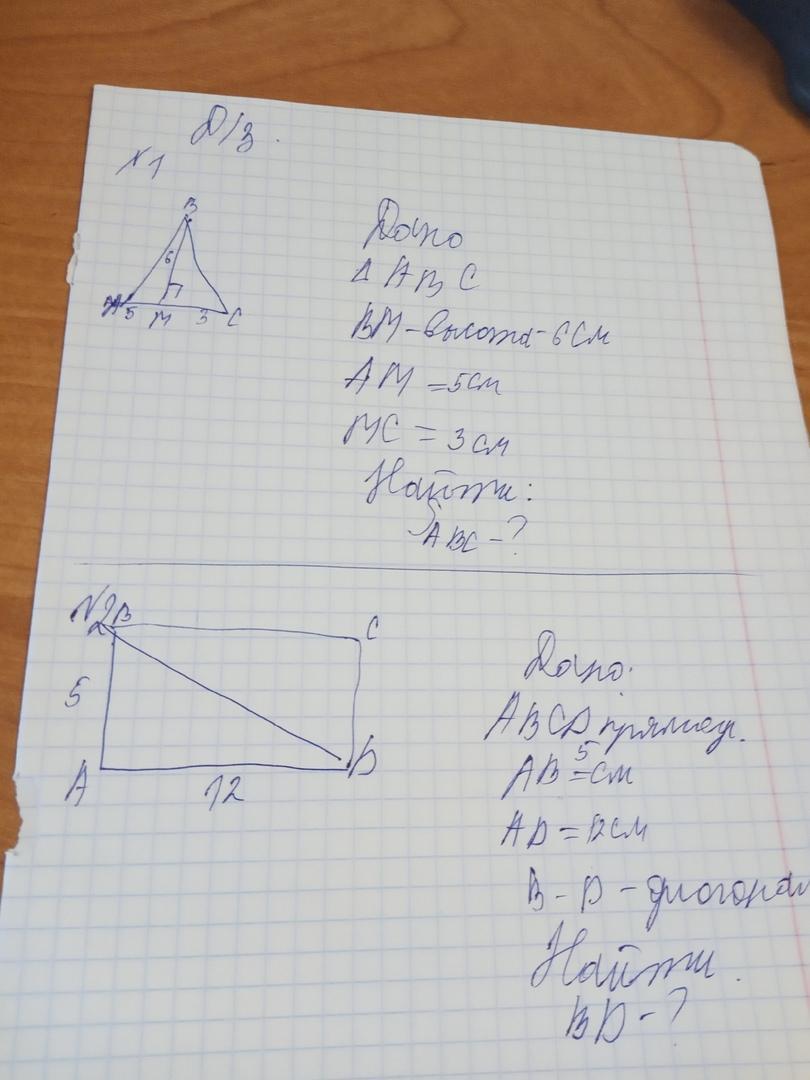 Д/з.
№1
B
6
A 5 M 3 C
Дано
Δ ABC
BM - высота - 6 см
AM = 5 см
MC = 3 см
Найти:
S ABC - ?
№2
B C
5
A 12 D
Дано.
ABCD прямоуг.
AB = 5 см
AD = 12 см
B - D - диогонал
Найти.
BD - ?